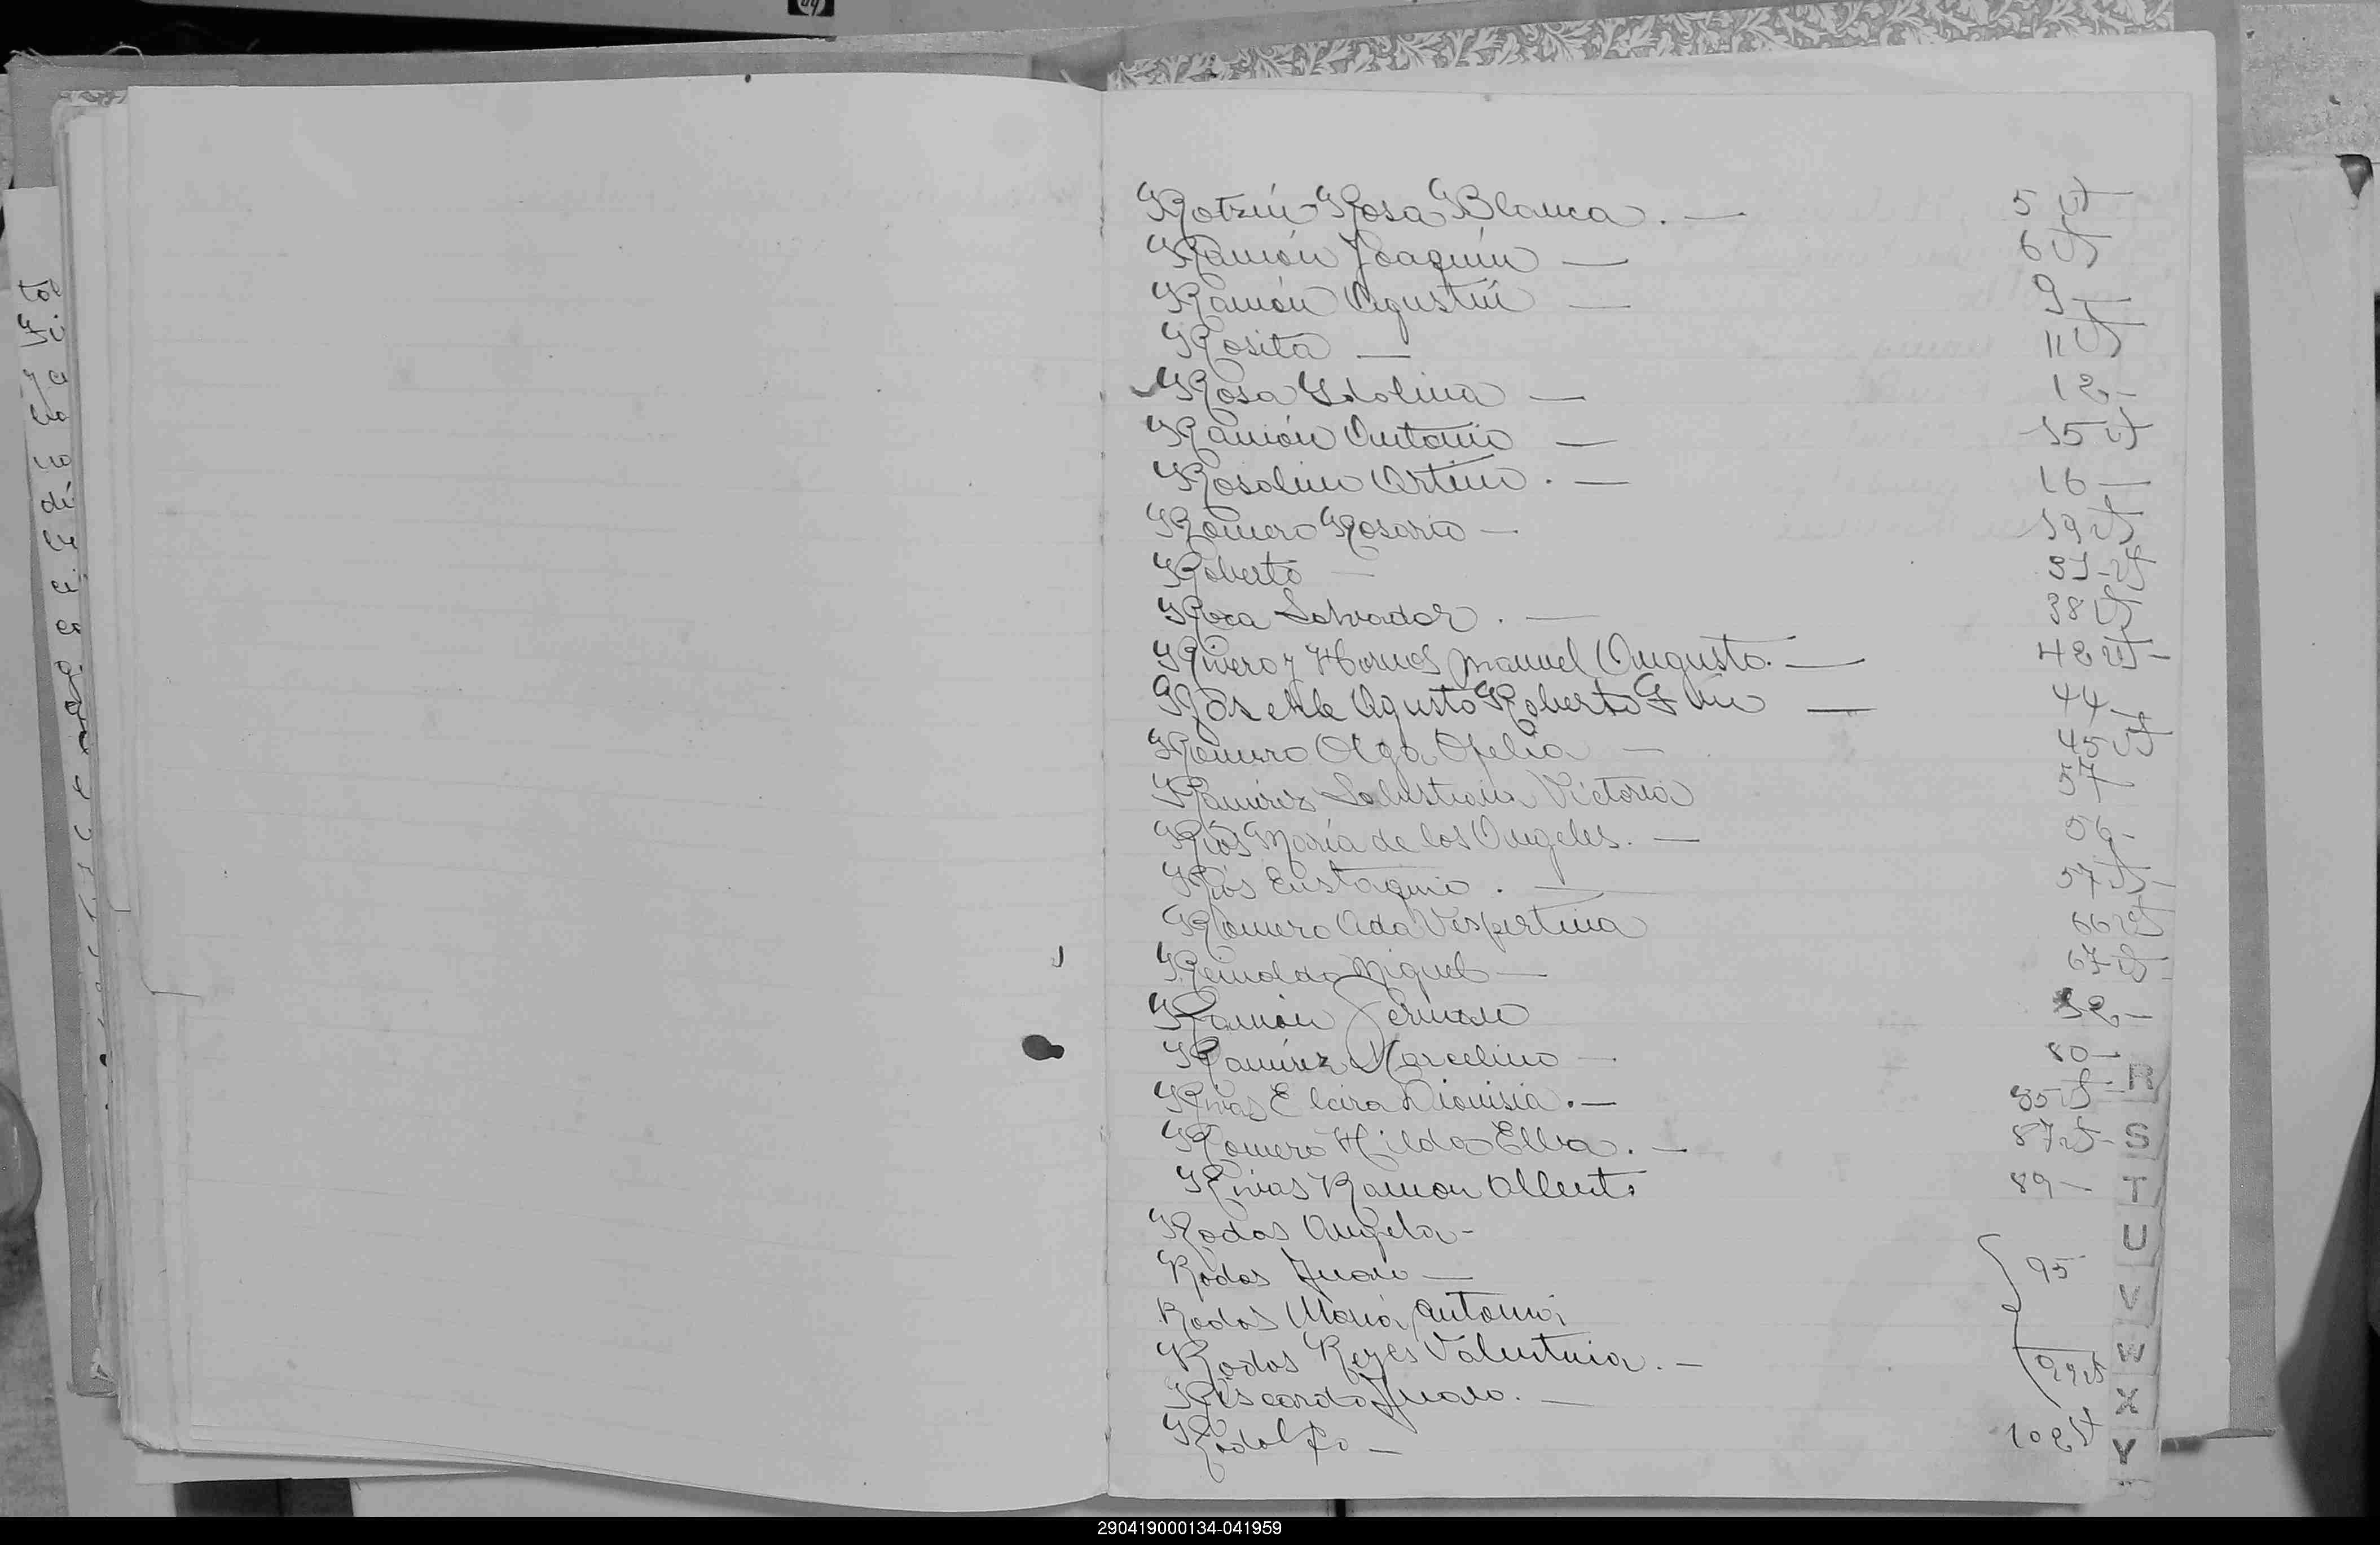 Rotzin Rosa Blanca. — 5 vt
Ramón Joaquín — 6 vt
Ramón Agustín — 9 —
Rosita — 11 vt
Rosa Idolina — 12 —
Ramón Antonio — 15 vt
Rosalino Artino. — 16 —
Romero Rosario — 19 vt
Roberto — 31 vt
Roca Salvador. — 38 vt
Rivero y Hornos Manuel Augusto. — 42 vt —
Agusto Roberto — 44 —
Romero Olga Ofelia — 45 vt
Ramirez Salustiana Victoria 57 —
Ríos María de los Angeles. — 56 —
Ríos Eustaquio. — 57 vt —
Romero Ada Vespertina 66 vt
Reinaldo Miguel — 67 vt
Ramón German
Ramírez Marcelino — 80 —
Rivas Elcira Dionisia. — 85 vt
Romero Hilda Elba. — 87 vt —
Rivas Ramon Alberto 89 —
Rodas Angela —
Rodas Juan — 95
Rodas Maria Antonia
Rodas Reyes Valentina. —
Riscardo Juan. — 99 vt
Rodolfo — 102 vt
R
S
T
U
V
W
X
Y
290419000134-041959